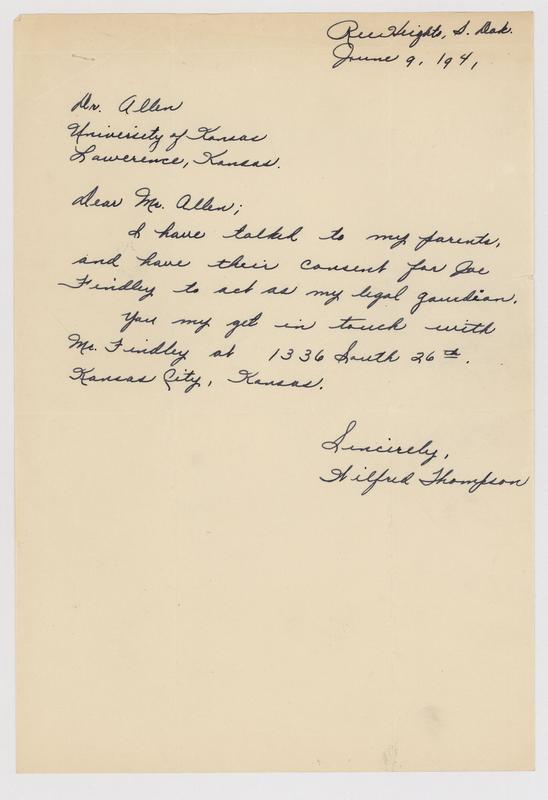 Ree Heights, S. Dak.
June 9, 1941
Dr. Allen
University of Kansas
Lawerence, Kansas.
Dear Mr. Allen;
I have talked to my parents,
and have their consent for Joe
Findley to act as my legal gaurdian.
You my get in touch with
Mr. Findley at 1336 South 26th.
Kansas City, Kansas.
Sincirely,
Wilfred Thompson